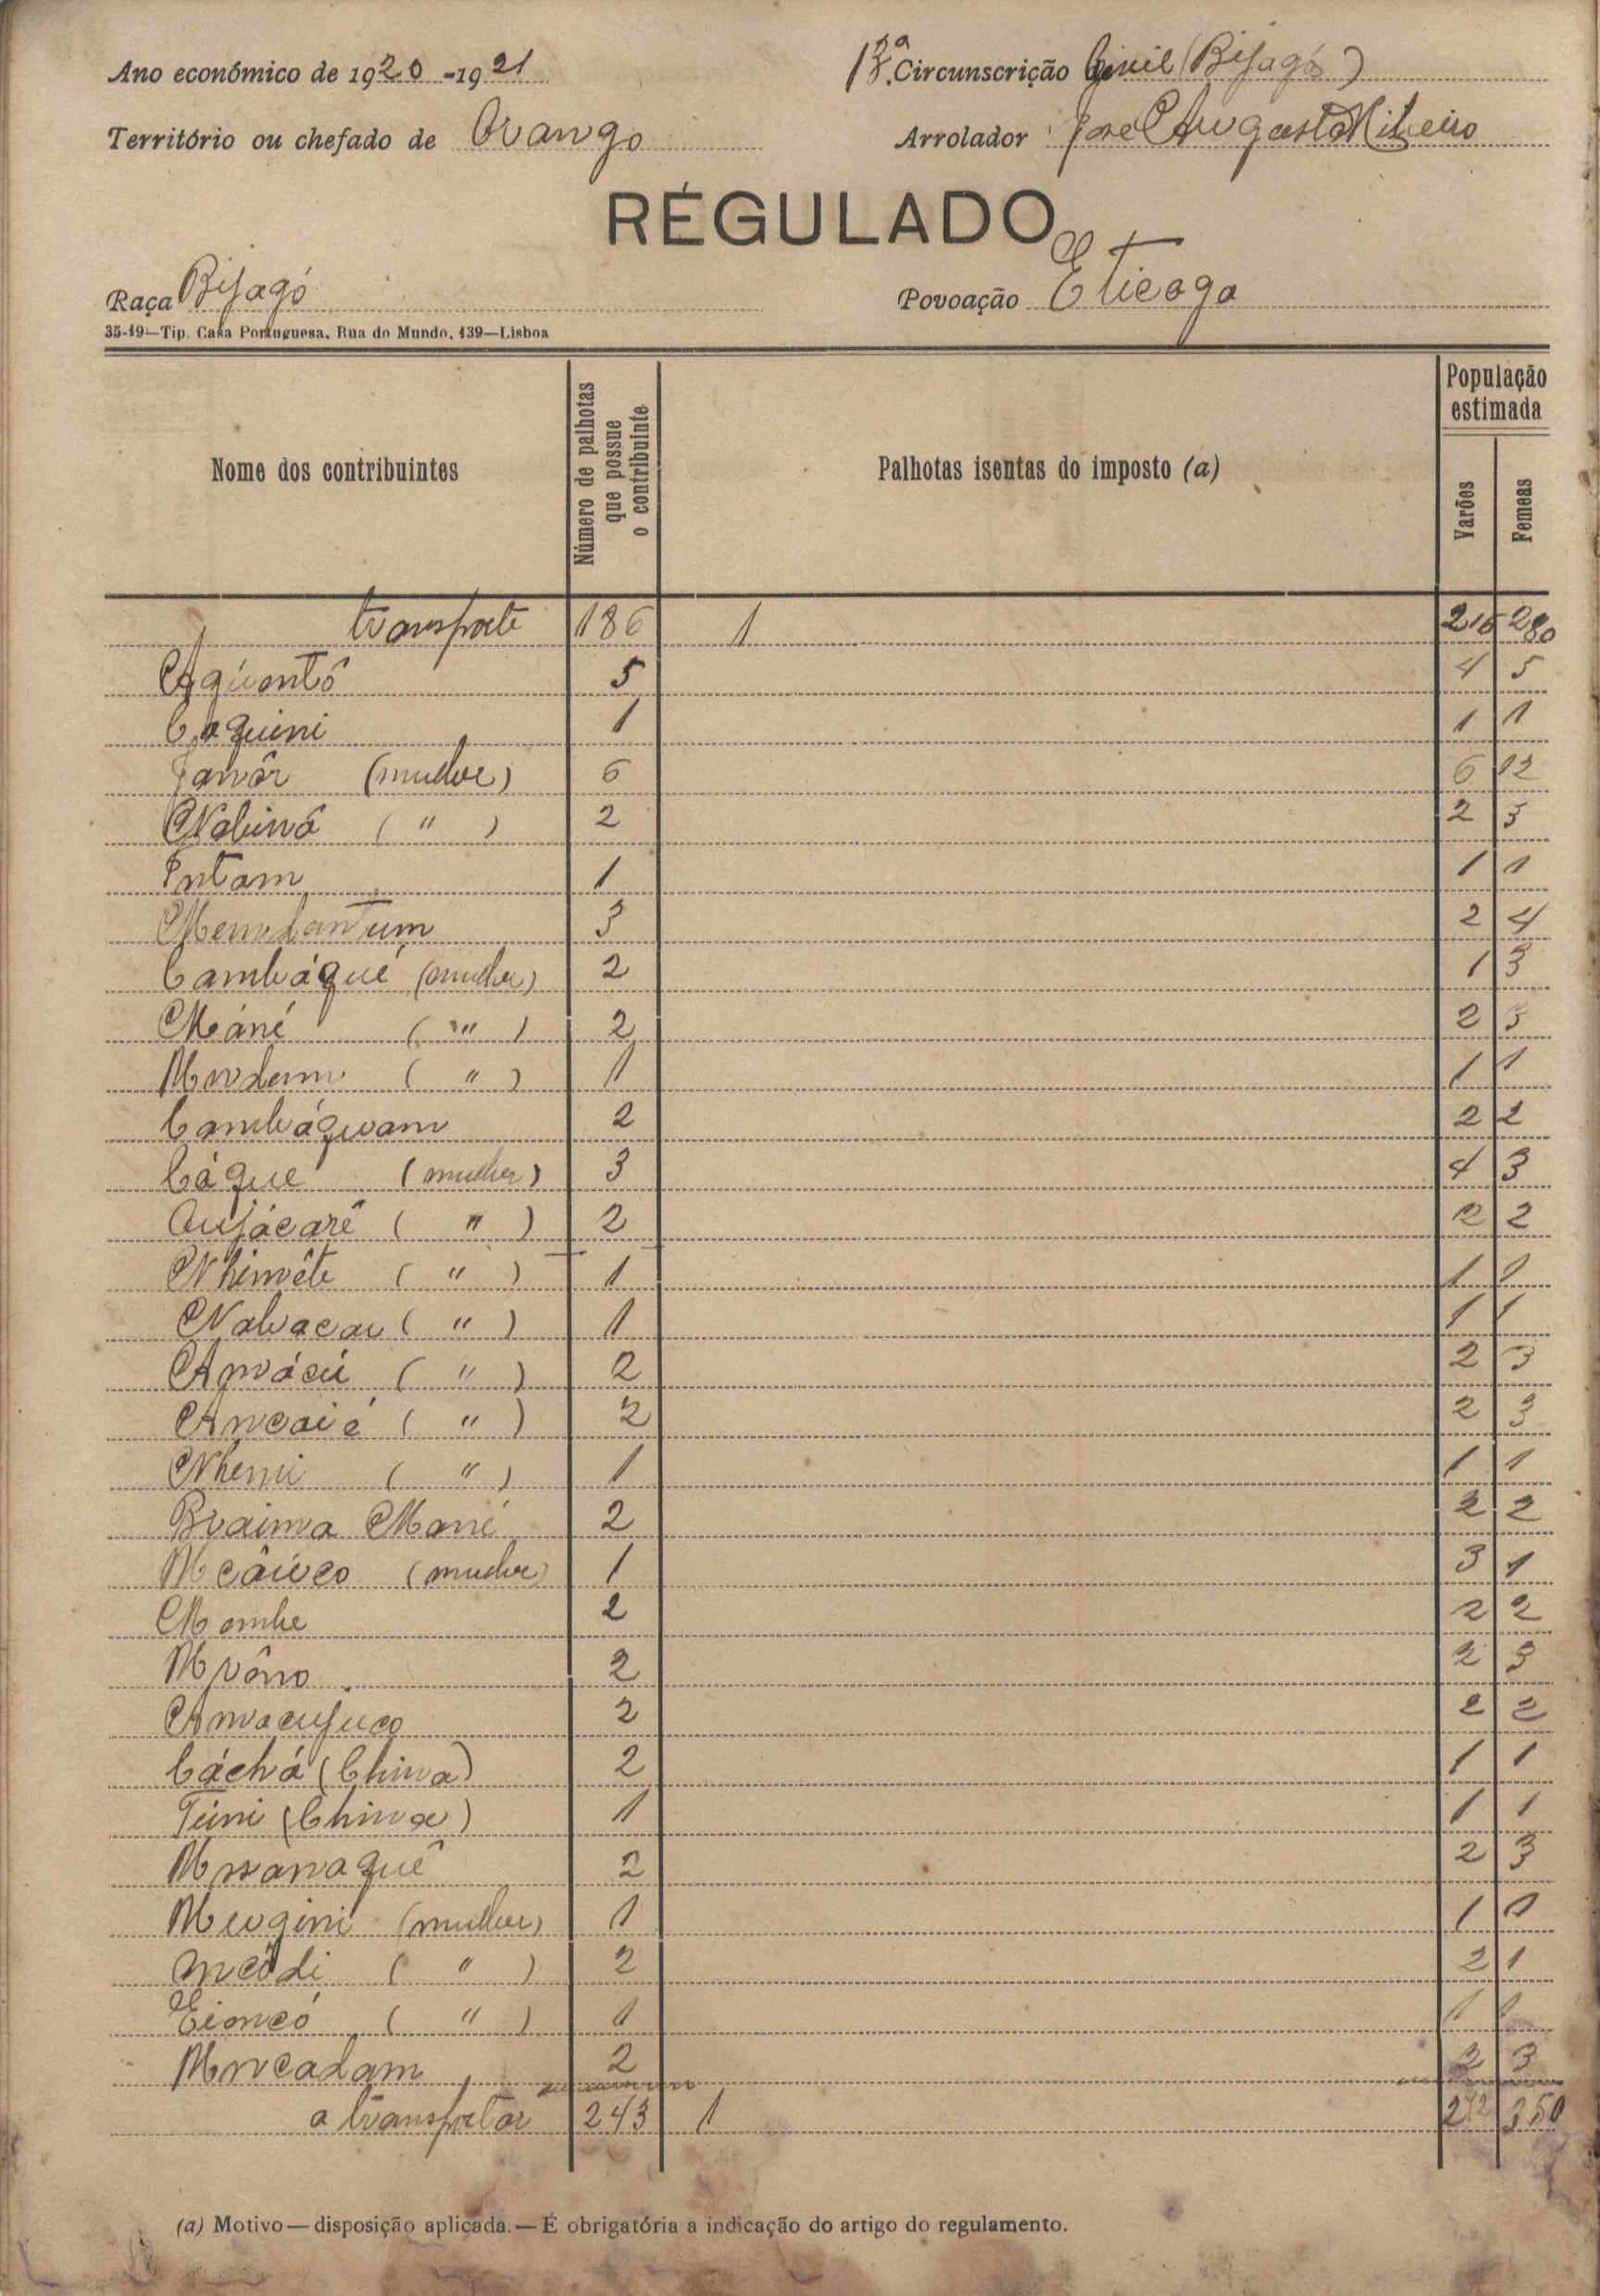 Ano económico de 1920-1921
13.ª Circunscrição Civil (Bijagós)
Território ou chefado de Orango
Arrolador José Augusto Ribeiro
RÉGULADO
Raça Bijagó
Povoação Eticoga
35-19—Tip. Casa Portuguesa, Rua do Mundo, 139—Lisboa
Nome dos contribuintes
Número de palhotas que possue o contribuinte
Palhotas isentas do imposto (a)
População estimada
Varões
Femeas
transporte 186 1 216 280
Aquontô 5 4 5
Coquini 1 1 1
Janôr (mulher) 6 6 12
Nabinô ( " ) 2 2 3
Intam 1 1 1
3 2 4
Cambáqué (mulher) 2 1 3
Máné ( " ) 2 2 3
( " ) 1 1 1
Cambáquam 2 2 2
Cáque (mulher) 3 4 3
Oujácarê ( " ) 2 2 2
Nhimête ( " ) 1 1 1
Nabacau ( " ) 1 1 1
( " ) 2 2 3
Ancaié ( " ) 2 2 3
Nhimi ( " ) 1 1 1
Braima Mané 2 2 2
(mulher) 1 3 1
Mombe 2 2 2
2 2 3
2 2 2
Cáchá (China) 2 1 1
Tini (China) 1 1 1
2 2 3
Mugini (mulher) 1 1 1
Ancôdi ( " ) 2 2 1
Eioncó ( " ) 1 1 1
Mncadam 2 2 3
a transportar 243 1 272 350
(a) Motivo—disposição aplicada.—É obrigatória a indicação do artigo do regulamento.